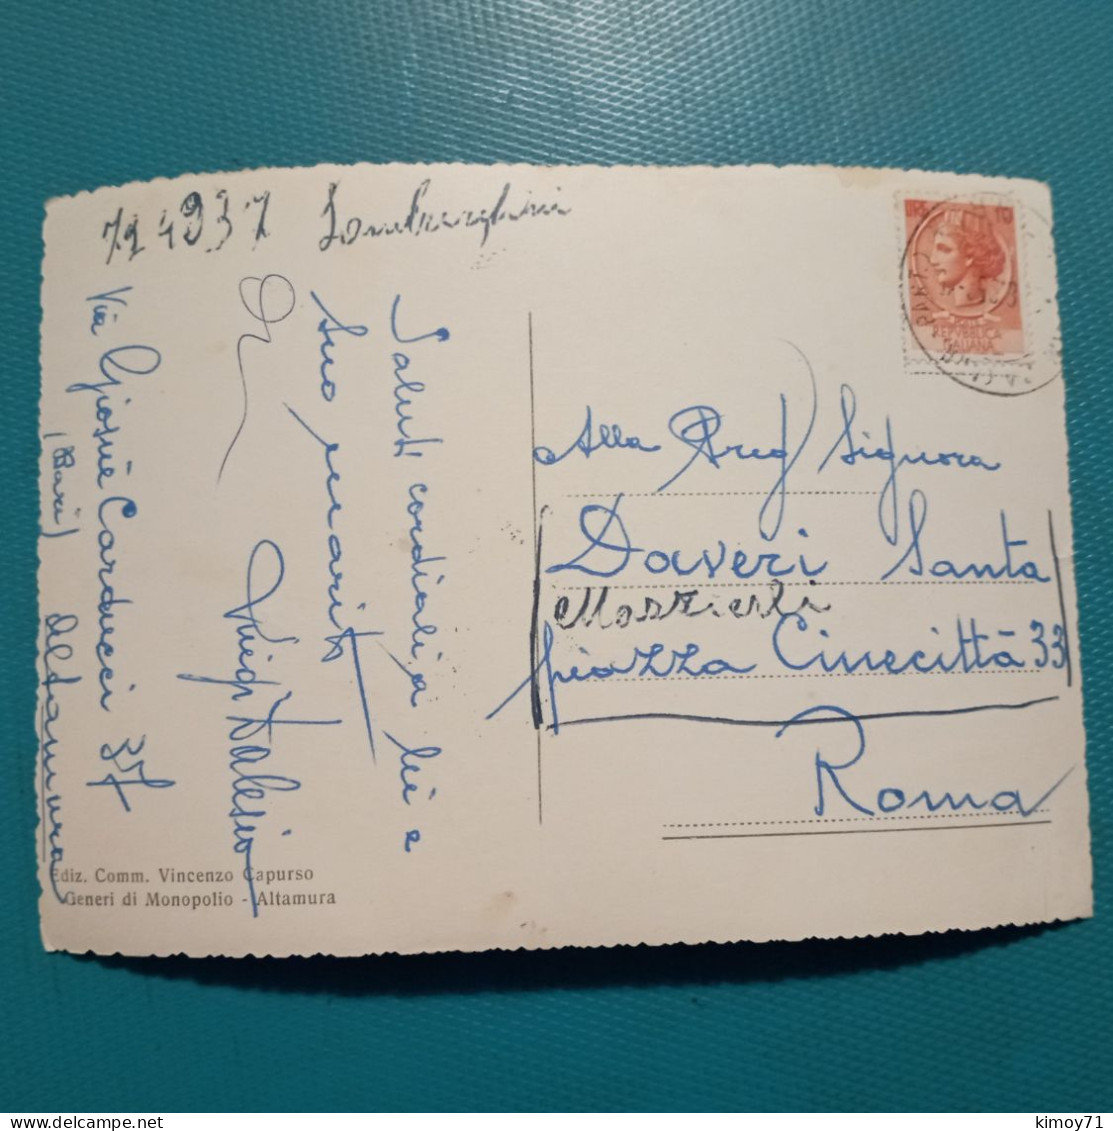 724937 Lamburghini
Saluti cordiali a lei e
suo marito
Luigi Dalesio
Via Giosuè Carducci 37
(Bari) Altamura
Ediz. Comm. Vincenzo Capurso
Generi di Monopolio - Altamura
10
REPUBBLICA
ITALIANA
Alla Preg Signora
Daveri Santa
piazza Cinecittà 33
Roma
kimoy71